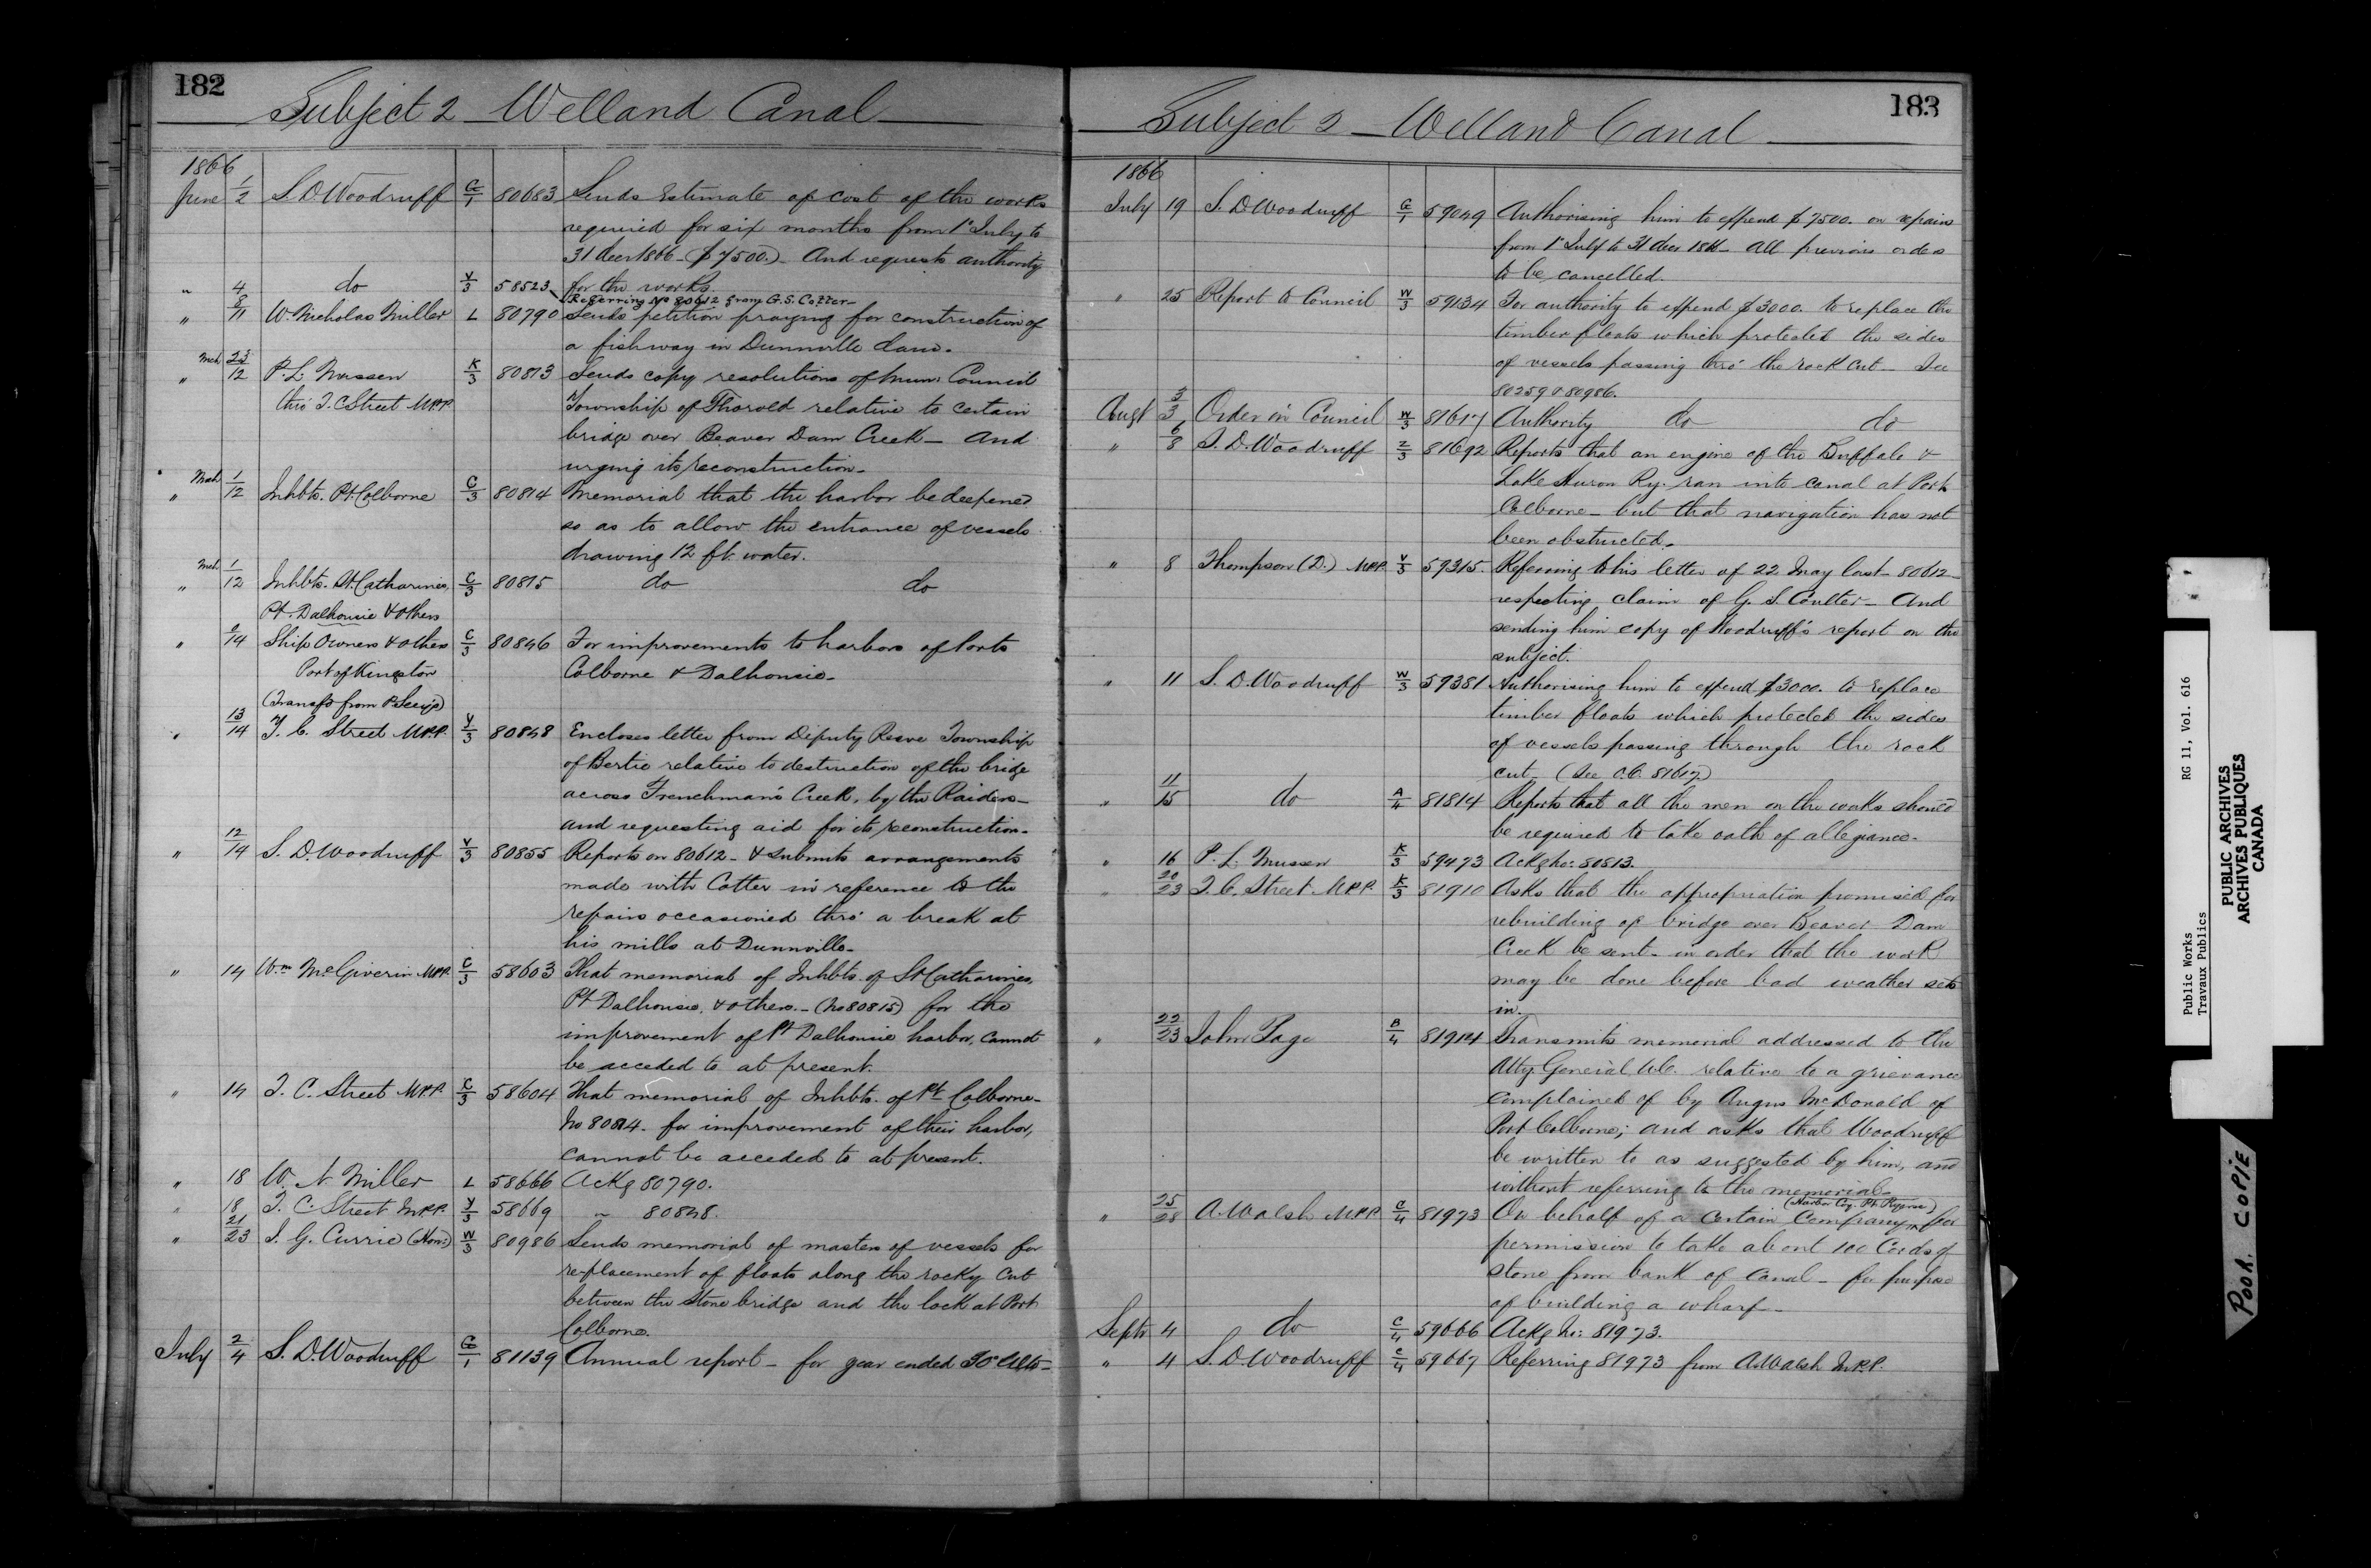 182
Subject 2 – Welland Canal
1866
June 1/2 S. D. Woodruff G/1 80683 Sends Estimate of cost of the works
required for six months from 1st July to
31 decr 1866 – ($7500.) – And requests authority
for the works.
" 4 do V/3 58523 Referring No 80612 from G. S. Cotter –
" 8/11 W. Nicholas Miller L 80790 Sends petition praying for construction of
a fishway in Dunnville dam.
" Mch 23/12 P. L. Mussen K/3 80813 Sends copy resolutions of Muni: Council
thro' T. C. Street M.P.P. Township of Thorold relative to certain
bridge over Beaver Dam Creek – And
urging its reconstruction –
" Mch 1/12 Inhbts. Pt. Colborne C/3 80814 Memorial that the harbor be deepened
so as to allow the entrance of vessels
drawing 12 ft. water.
" Mch 1/12 Inhbts. St. Catharines, C/3 80815 do do
Pt. Dalhousie & others
" /14 Ship Owners & others C/3 80846 For improvements to harbors of Ports
Port of Kingston Colborne & Dalhousie –
(Transfd from P. Secy's)
" 13/14 T. C. Street M.P.P. Y/3 80848 Encloses letter from Deputy Reeve Township
of Bertie relative to destruction of the bridge
across Frenchman's Creek, by the Raiders –
and requesting aid for its reconstruction –
" 12/14 S. D. Woodruff V/3 80855 Reports on 80612 – & submits arrangements
made with Cotter in reference to the
repairs occasioned thro' a break at
his mills at Dunnville –
" 14 Wm McGiverin M.P.P. C/3 58603 That memorial of Inhbts. of St. Catharines,
Pt Dalhousie, & others. – (No 80815) for the
improvement of Pt Dalhousie harbor, cannot
be acceded to at present.
" 14 T. C. Street M.P.P. C/3 58604 That memorial of Inhbts. of Pt Colborne –
No 80814 – for improvement of their harbor,
cannot be acceded to at present.
" 18 W. N. Miller L 58666 Ackg 80790.
" 18 T. C. Street M.P.P. Y/3 58669 " 80848.
" 21/23 J. G. Currie (Hon:) W/3 80986 Sends memorial of masters of vessels for
re-placement of floats along the rocky cut
between the Stone bridge and the lock at Port
Colborne.
July 2/4 S. D. Woodruff G/1 81139 Annual report – for year ended 30 Ulto –
183
Subject 2 – Welland Canal
1866
July 19 S. D Woodruff G/1 59049 Authorising him to expend $7500. on repairs
from 1st July to 31 decr 1866 – All previous orders
to be cancelled.
" 25 Report to Council W/3 59134 For authority to expend $3000. to replace the
timber floats which protected the sides
of vessels passing thro' the rock cut – See
80259 & 80986.
Augt 3/3 Order in Council W/3 81617 Authority do do
" 6/8 S. D. Woodruff Z/3 81692 Reports that an engine of the Buffalo &
Lake Huron Ry. ran into canal at Port
Colborne – but that navigation has not
been obstructed –
" 8 Thompson (D.) M.P.P. V/3 59315. Referring to his letter of 22 May last – 80612 –
respecting claim of G. S. Coulter – And
sending him copy of Woodruff's report on the
subject.
" 11 S. D. Woodruff W/3 59381 Authorising him to expend $3000. to replace
timber floats which protected the sides
of vessels passing through the rock
cut – (See O.C. 81617)
" 11/15 do A/4 81814 Reports that all the men on the works should
be required to take oath of allegiance –
" 16 P. L. Mussen K/3 59473 Ackg No: 80813.
" 20/23 T. C. Street M.P.P. K/3 81910 Asks that the appropriation promised for
rebuilding of bridge over Beaver Dam
Creek be sent – in order that the work
may be done before bad weather sets
in.
" 22/23 John Page B/4 81914 Transmits memorial addressed to the
Atty. General U.C. relative to a grievance
complained of by Angus McDonald of
Port Colborne; and asks that Woodruff
be written to as suggested by him, and
without referring to the memorial –
" 25/28 A. Walsh M.P.P. C/4 81973 On behalf of a certain Company, for
permission to take about 100 Cords of
stone from bank of canal – for purpose
of building a wharf –
Septr 4 do C/4 59666 Ackg No: 81973.
" 4 S. D. Woodruff C/4 59667 Referring 81973 from A. Walsh M.P.P.
Public Works RG 11, Vol. 616
Travaux Publics
PUBLIC ARCHIVES
ARCHIVES PUBLIQUES
CANADA
POOR COPIE